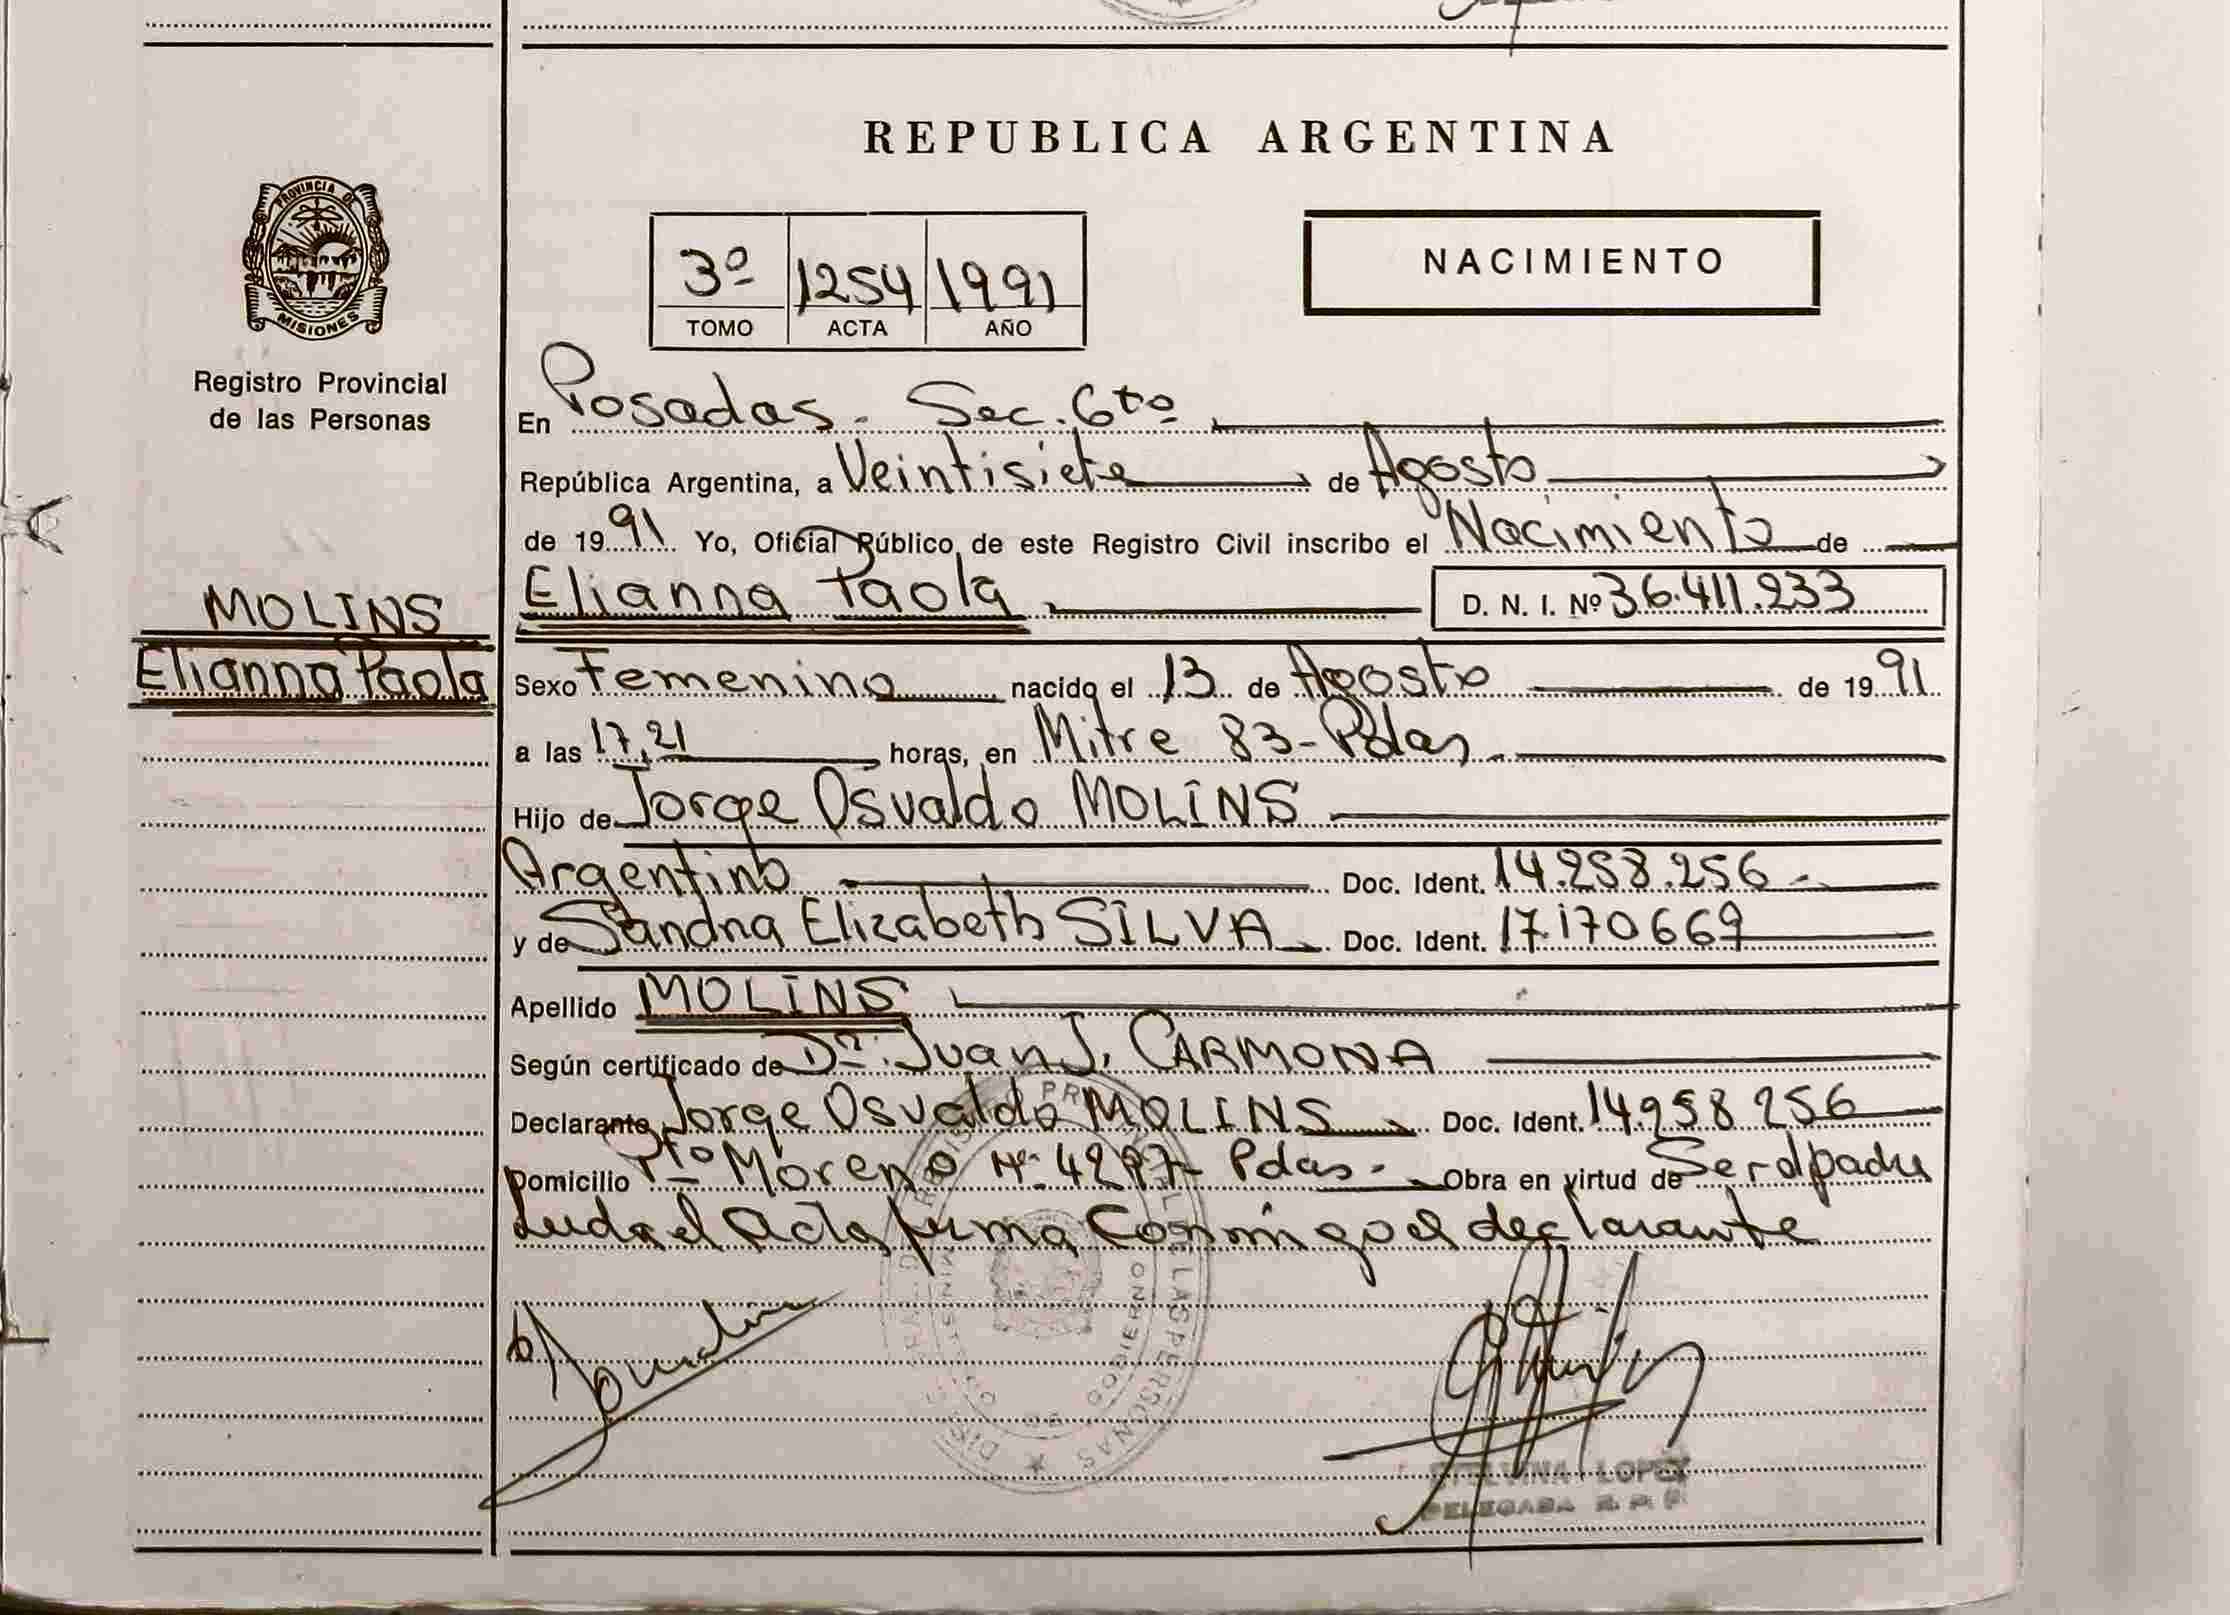 REPUBLICA ARGENTINA
PROVINCIA DE
MISIONES
Registro Provincial
de las Personas
3º 1254 1991
TOMO ACTA AÑO
NACIMIENTO
En Posadas - Sec. 6ta
República Argentina, a Veintisiete de Agosto
de 1991 Yo, Oficial Público de este Registro Civil inscribo el Nacimiento de
MOLINS
Elianna Paola
Elianna Paola D. N. I. Nº 36.411.233
Sexo Femenino nacido el 13 de Agosto de 1991
a las 17,21 horas, en Mitre 83 - Pdas
Hijo de Jorge Osvaldo MOLINS
Argentino Doc. Ident. 14.258.256 -
y de Sandra Elizabeth SILVA Doc. Ident. 17.170669
Apellido MOLINS
Según certificado de Dr. Juan J. CARMONA
Declarante Jorge Osvaldo MOLINS Doc. Ident. 14.258 256
Domicilio Pto Moreno Nº 4297 - Pdas - Obra en virtud de Ser el padre
Leida el Acta firma Conmigo el declarante
LAS PERSONAS
GOBIERNO
LOPEZ
DELEGADA